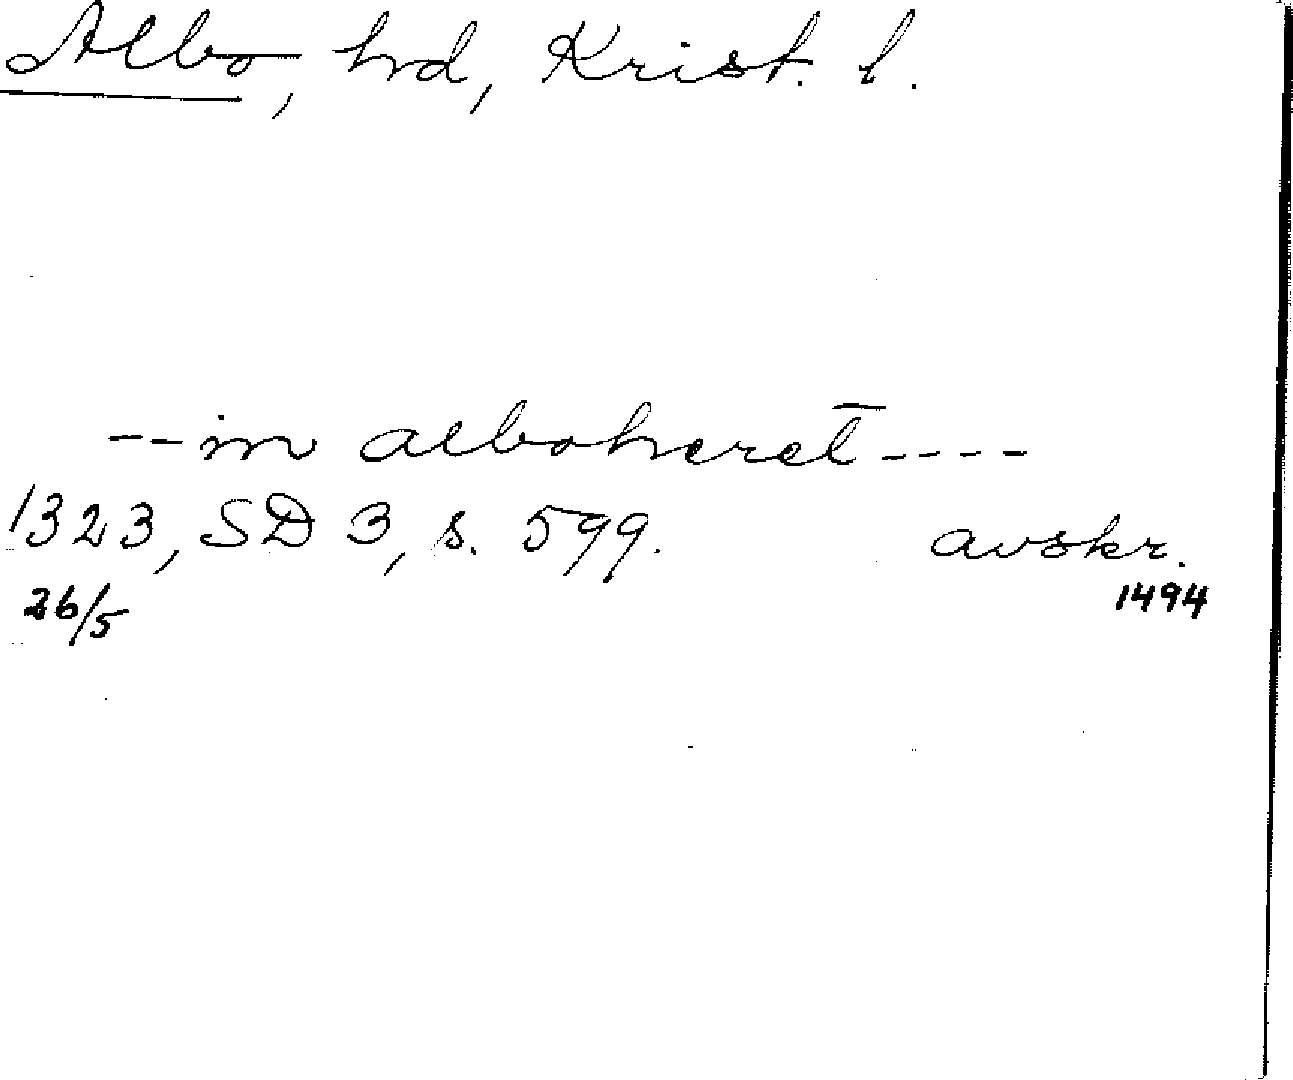 Albo, hrd, Krist. l.
-- in alboheret̅ ----
1323, SD 3, s. 599. avskr.
26/5 1494